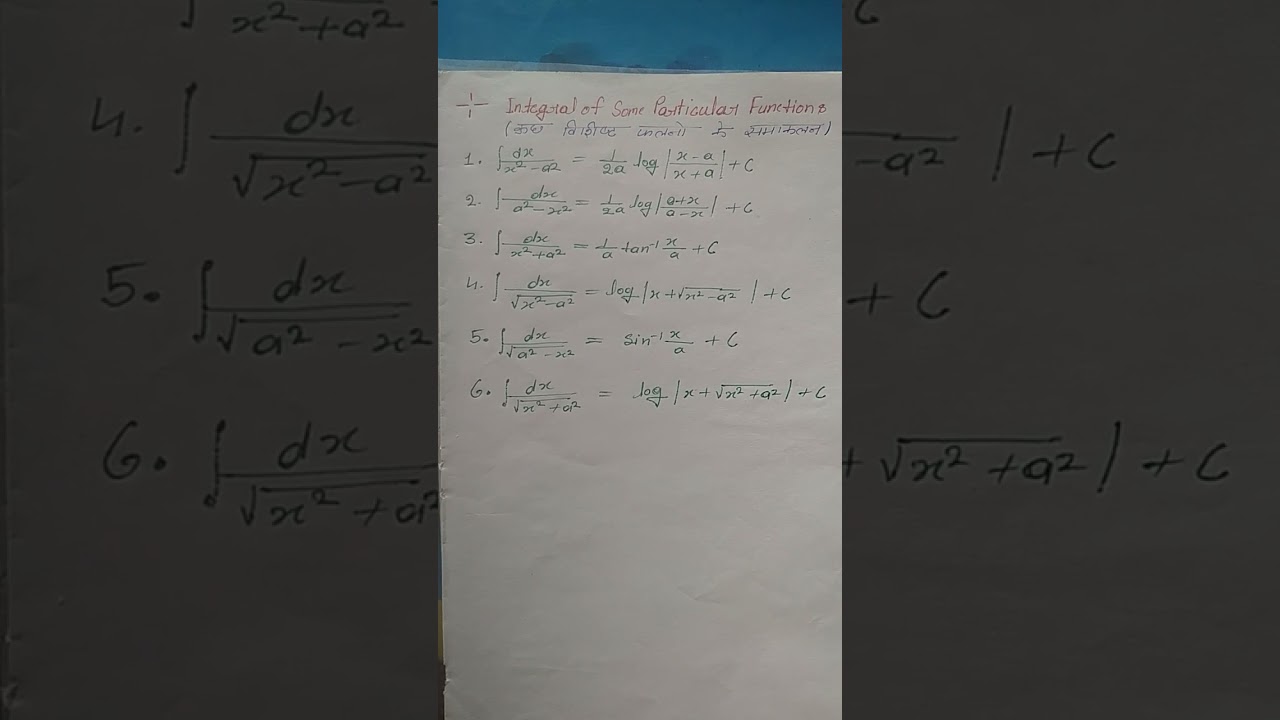 Integral of Some Particular Functions
(कुछ विशिष्ट फलनो के समाकलन)
1. ∫ dx/(x² - a²) = 1/2a log |(x - a)/(x + a)| + C
2. ∫ dx/(a² - x²) = 1/2a log |(a + x)/(a - x)| + C
3. ∫ dx/(x² + a²) = 1/a tan⁻¹ x/a + C
4. ∫ dx/√(x² - a²) = log |x + √(x² - a²)| + C
5. ∫ dx/√(a² - x²) = sin⁻¹ x/a + C
6. ∫ dx/√(x² + a²) = log |x + √(x² + a²)| + C